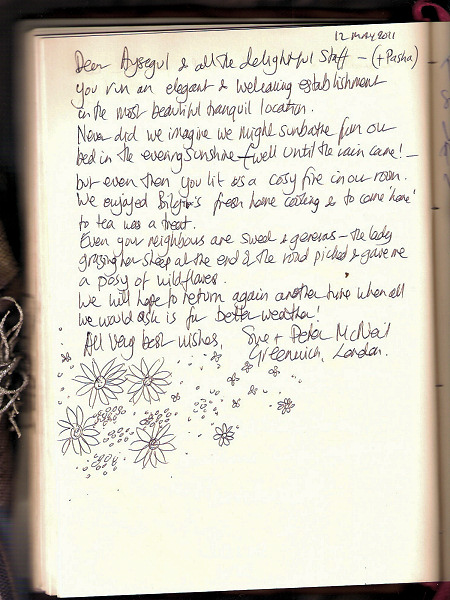 12 MAY 2011
Dear Aysegul & all the delightful Staff – (+Pasha)
You run an elegant & welcoming establishment
in the most beautiful tranquil location.
Never did we imagine we might sunbathe from our
bed in the evening sunshine – (well until the rain came! –
but even then you lit us a cosy fire in our room.
We enjoyed Bilgin's fresh home cooking & to come 'home'
to tea was a treat.
Even your neighbours are sweet & generous – the lady
grazing her sheep at the end of the road picked & gave me
a posy of wildflowers.
We will hope to return again another time when all
we would ask is for better weather!
All very best wishes, Sue + Peter McNeil
Greenwich, London.